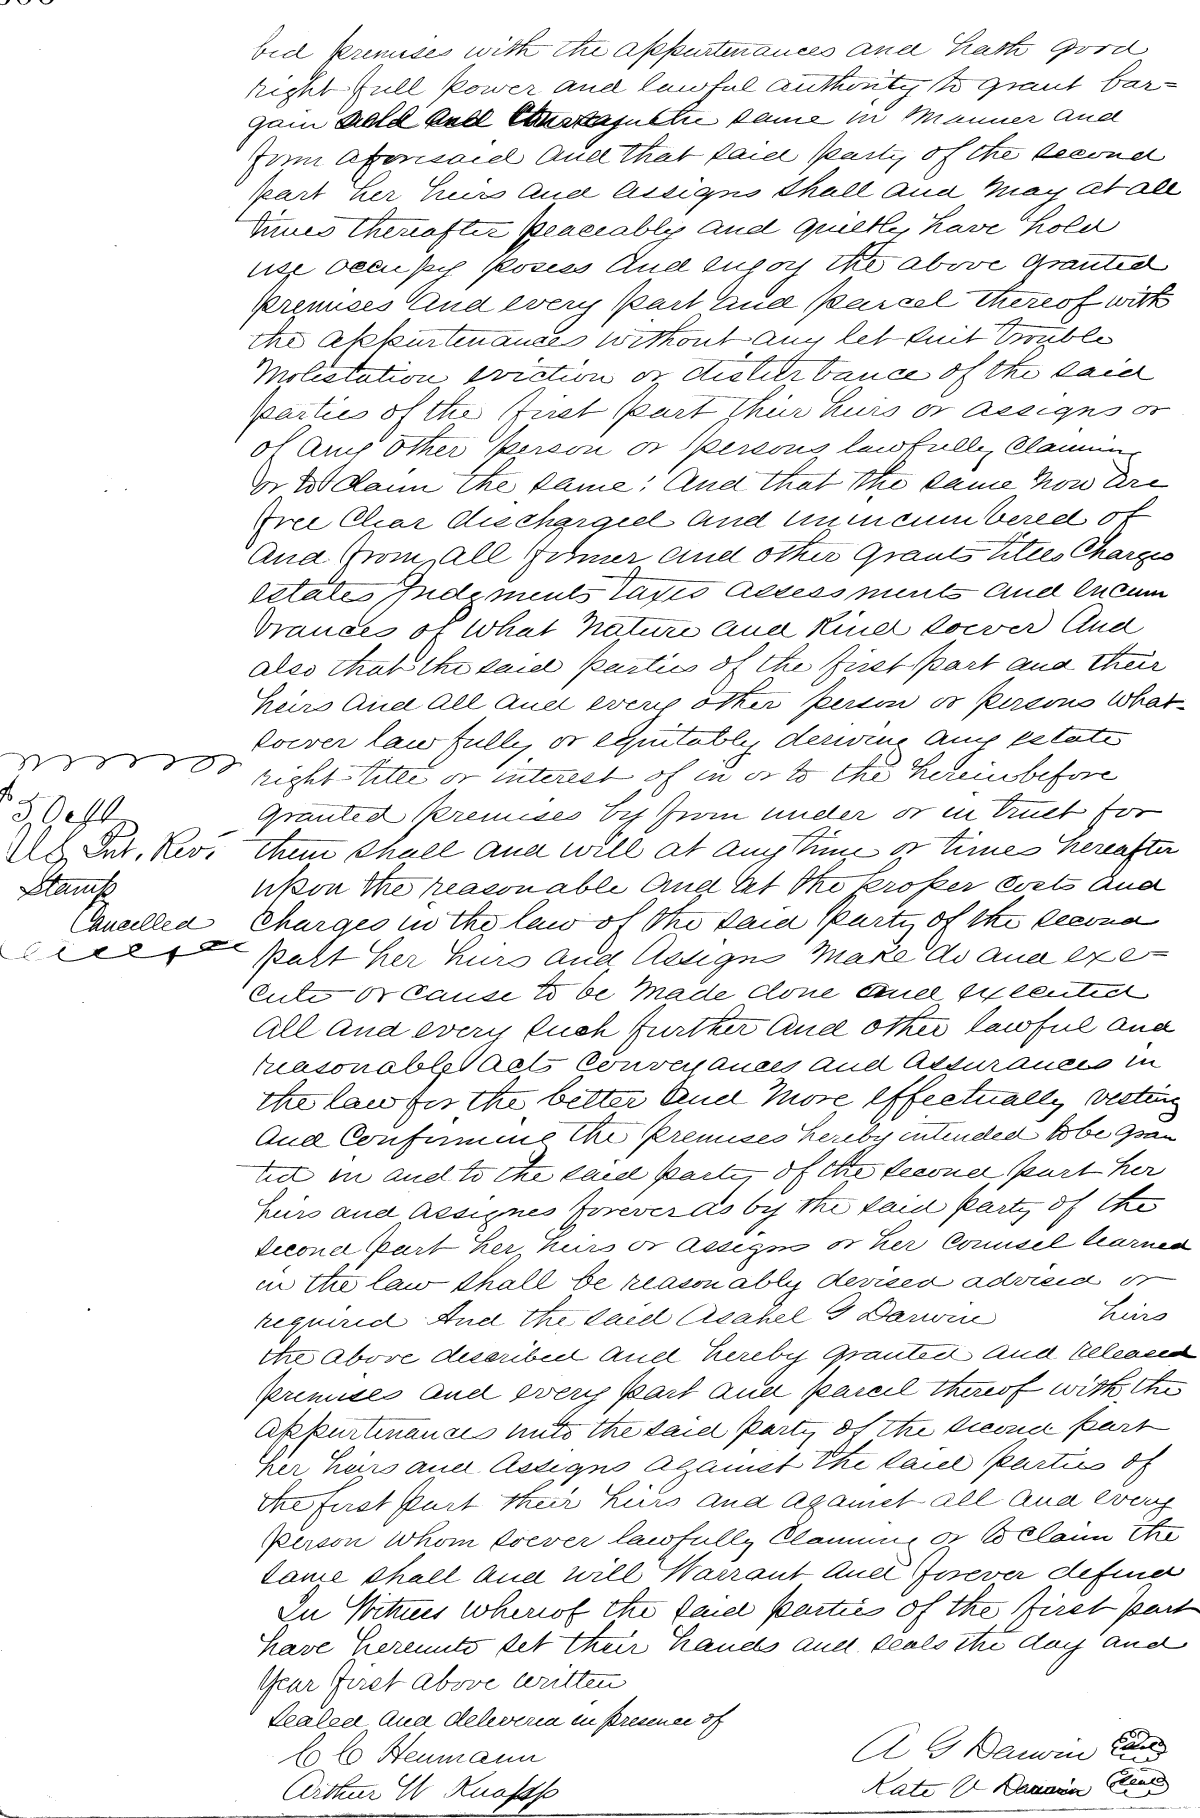 bed premises with the appurtenances and hath good
right full power and lawful authority to grant bar=
gain sold and convey the same in manner and
form aforesaid and that said party of the second
part her heirs and assigns shall and may at all
times thereafter peaceably and quietly have hold
use occupy posess and enjoy the above granted
premises and every part and parcel thereof with
the appurtenances without any let suit trouble
molestation eviction or disturbance of the said
parties of the first part their heirs or assigns or
of any other person or persons lawfully claiming
or to claim the same: And that the same now are
free clear discharged and unincumbered of
and from all former and other grants titles charges
estates judgments taxes assessments and encum
brances of what nature and kind soever And
also that the said parties of the first part and their
heirs and all and every other person or persons what-
soever lawfully or equitably deriving any estate
right title or interest of in or to the hereinbefore
granted premises by from under or in trust for
them shall and will at any time or times hereafter
upon the reasonable and at the proper costs and
charges in the law of the said party of the second
part her heirs and assigns make do and exe=
cute or cause to be made done and executed
all and every such further and other lawful and
reasonable acts conveyances and assurances in
the law for the better and more effectually vesting
and confirming the premises hereby intended to be gran
ted in and to the said party of the second part her
heirs and assignes forever as by the said party of the
second part her heirs or assigns or her counsel learned
in the law shall be reasonably devised advised or
required And the said Asahel G Darwin heirs
the above described and hereby granted and released
premises and every part and parcel thereof with the
appurtenances unto the said party of the second part
her heirs and assigns against the said parties of
the first part their heirs and against all and every
person whom soever lawfully claiming or to claim the
same shall and will Warrant and forever defend
In Witness whereof the said parties of the first part
have hereunto set their hands and seals the day and
year first above written
Sealed and delivered in presence of
C C Heumann
Arthur W Knapp
A G Darwin Seal
Kate V Darwin Seal
U S Int. Rev.
Stamp
Cancelled